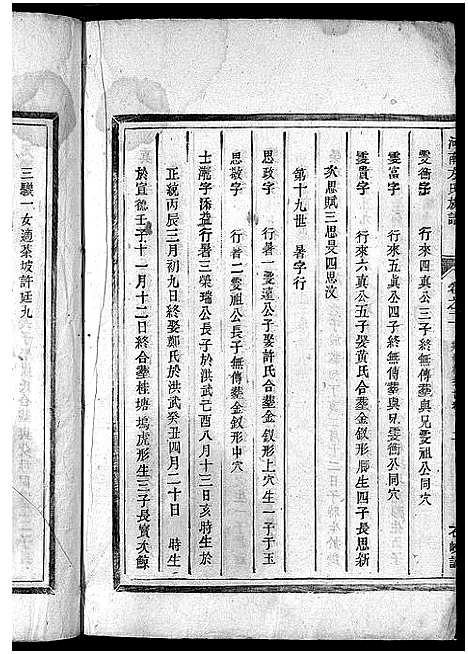 河南方氏族譜
雯衡字　行來四真公三子終無傳塟與兄雯衝公同穴
雯富字　行來五真公四子終無傳塟與兄雯衝公同穴
雯貴字　行來六真公五子娶黃氏合塟金釵形腳生四子長思新
次思賦三思旻四思汶
第十九世　暑字行
思政字　行暑一雯遠公子娶許氏合塟金釵形上穴生一子于玉
思敬字　行暑二雯祖公長子終無傳塟金釵形中穴
士瀧字添益行暑三榮瑞公長子於洪武己酉八月十三日亥時生於
正統丙辰三月初九日終娶鄭氏於洪武癸丑四月二十日　時生
於宣德壬子十一月十二日終合塟桂塘塢虎形生三子長寶次餘
三駿一女適茶坡許廷九